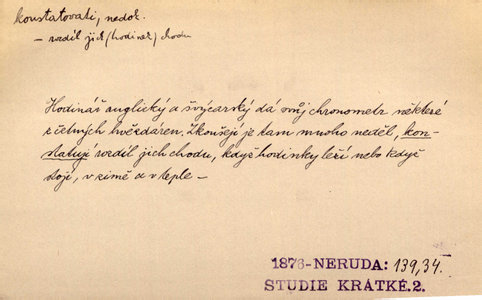 konstatovati, nedok.
– rozdíl jich (hodinek) chodu
Hodinář anglický a švýcarský dá svůj chronometr některé
z četných hvězdáren. Zkoušejí je tam mnoho neděl, kon-
statují rozdíl jich chodu, když hodinky leží nebo když
stojí, v zimě a v teple –
1876-NERUDA: 139,34.
STUDIE KRÁTKÉ.2.